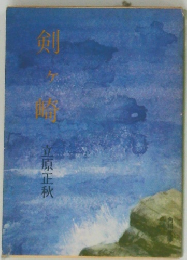 剣ヶ崎
立原正秋